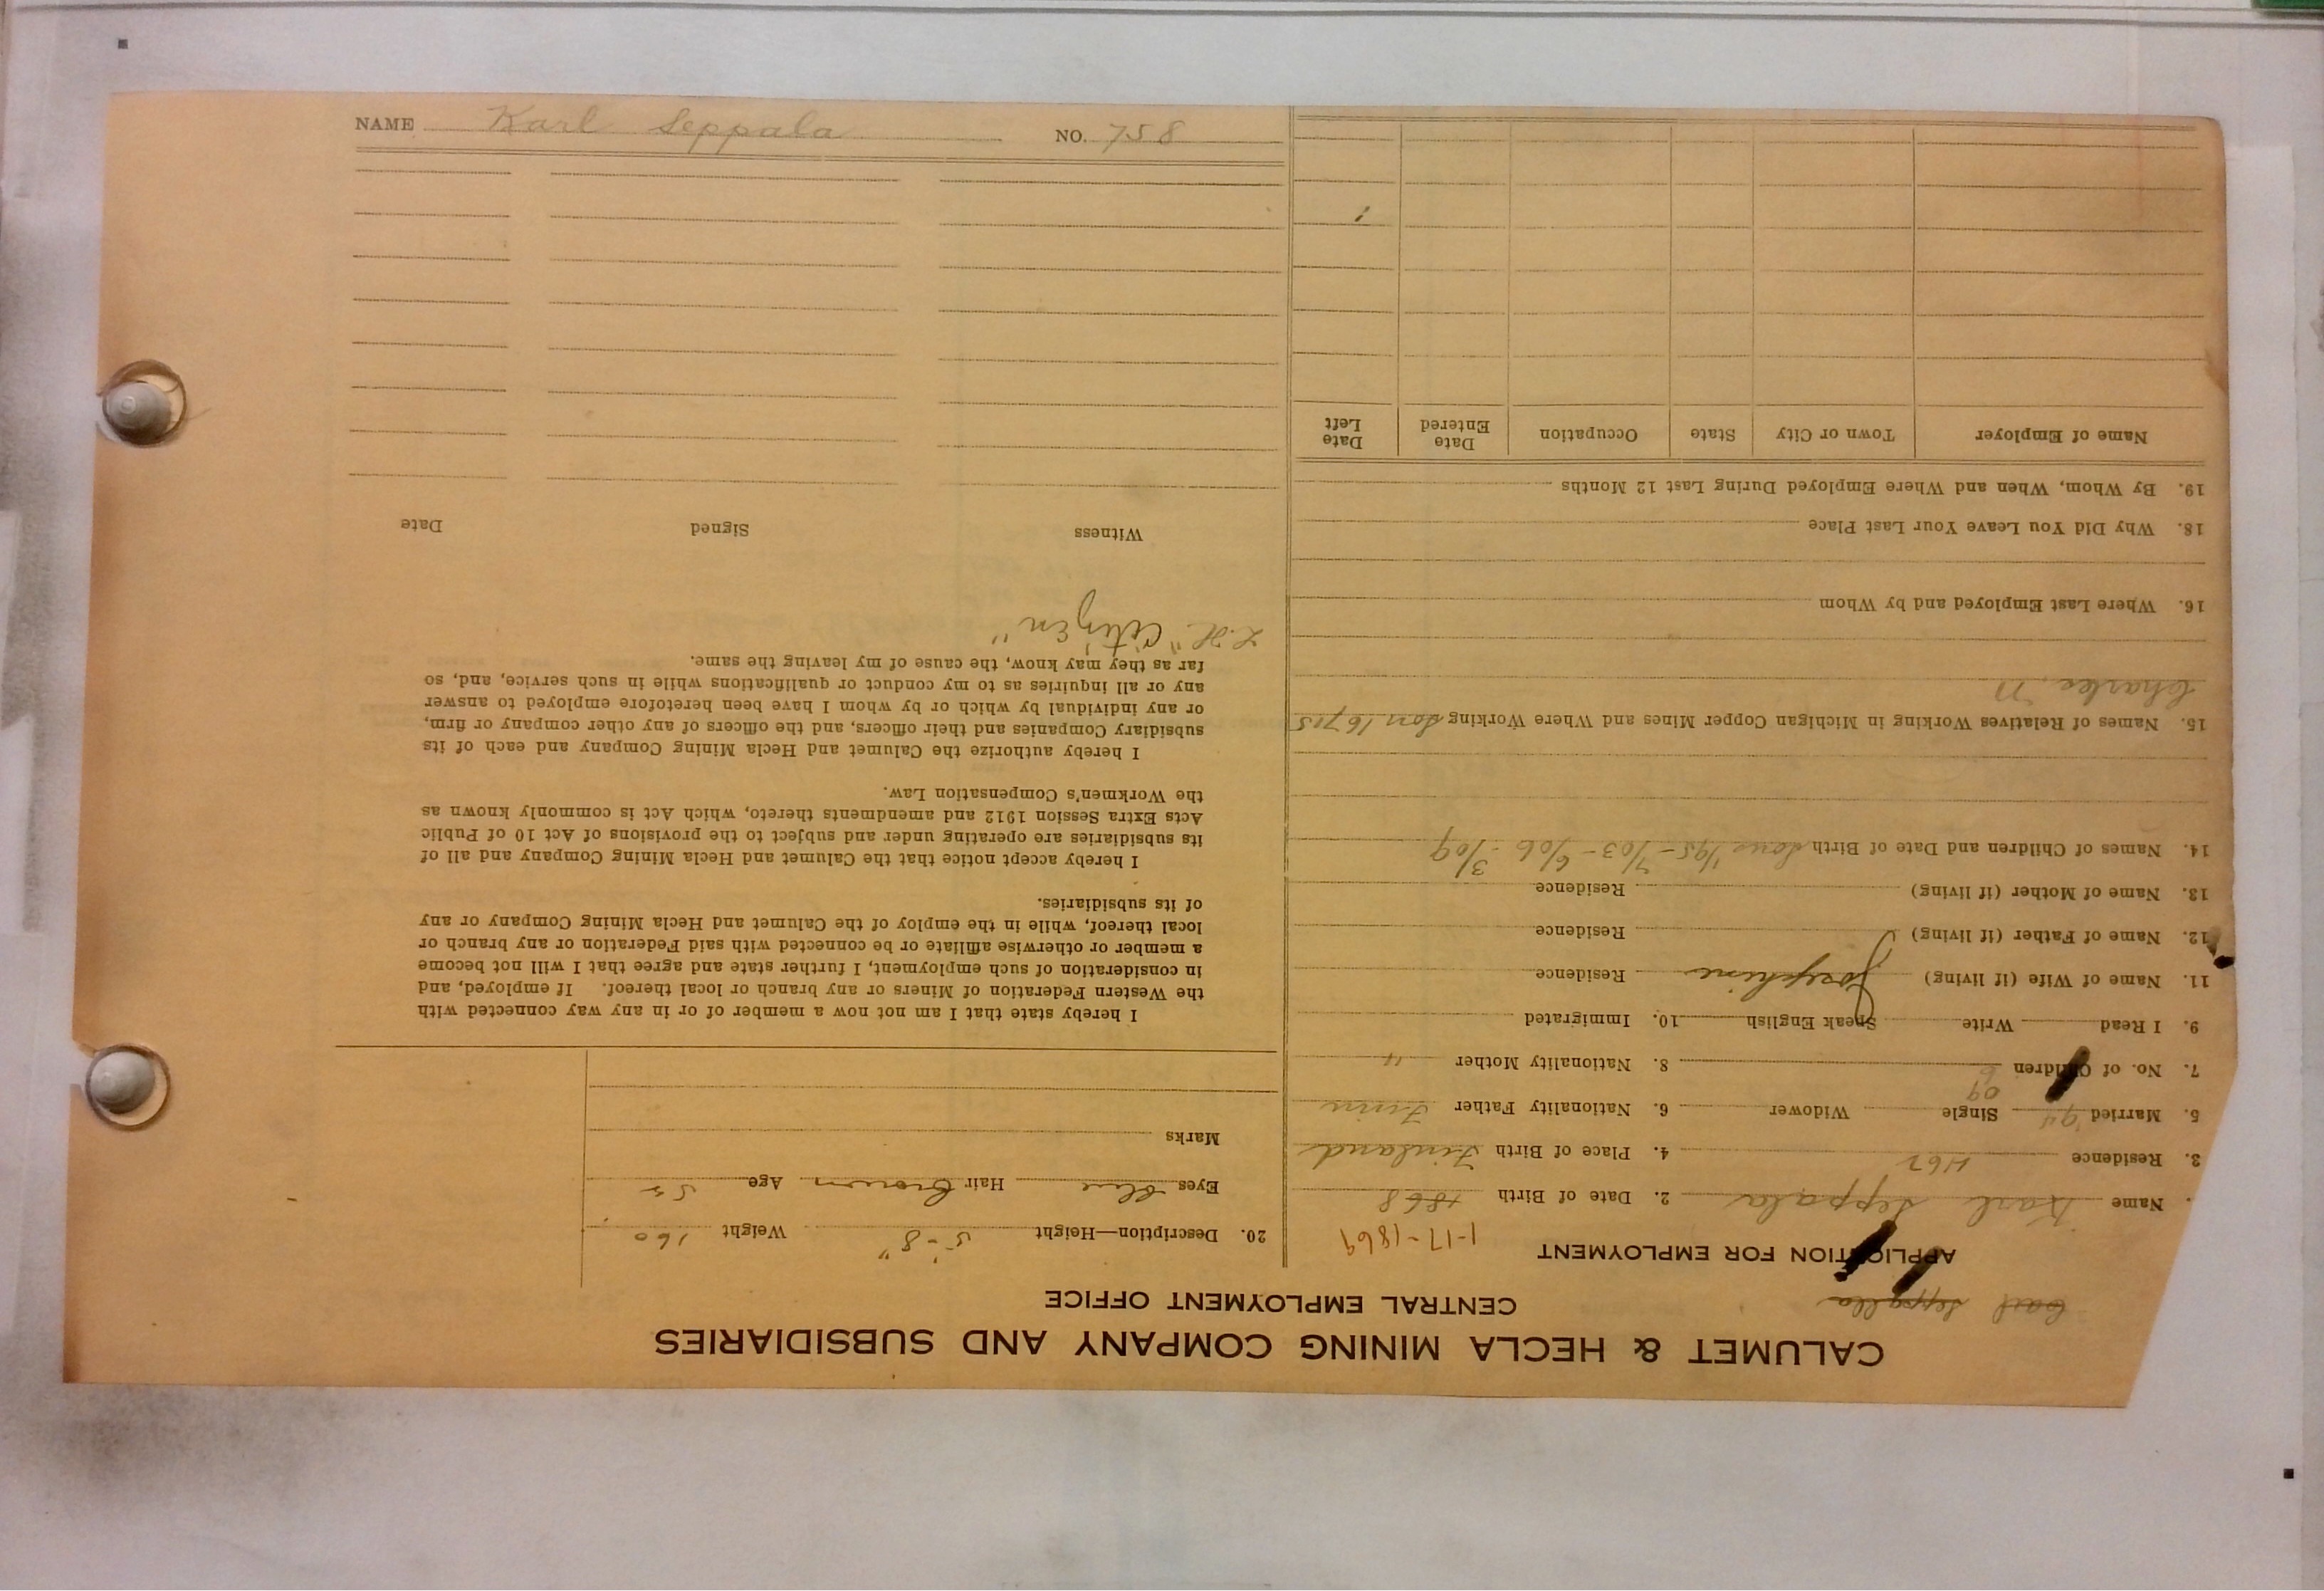 CALUMET & HECLA MINING COMPANY AND SUBSIDIARIES
CENTRAL EMPLOYMENT OFFICE
Carl Seppala
APPLICATION FOR EMPLOYMENT
1-17-1869
Name Karl Seppala 2. Date of Birth 1868
3. Residence 4. Place of Birth Finland
5. Married 94 Single Widower 6. Nationality Father Finn
09
7. No. of Children 6 8. Nationality Mother "
9. I Read Write Speak English 10. Immigrated
11. Name of Wife (if living) Josephine Residence
12. Name of Father (if living) Residence
13. Name of Mother (if living) Residence
14. Names of Children and Date of Birth Sons 1/95 - 7/03 - 6/06 - 3/09
15. Names of Relatives Working in Michigan Copper Mines and Where Working Son 16715
Charles, M
16. Where Last Employed and by Whom
18. Why Did You Leave Your Last Place
19. By Whom, When and Where Employed During Last 12 Months
Name of Employer Town or City State Occupation Date Entered Date Left
20. Description—Height 5'-8" Weight 160
Eyes Blue Hair Brown Age
Marks
I hereby state that I am not now a member of or in any way connected with
the Western Federation of Miners or any branch or local thereof. If employed, and
in consideration of such employment, I further state and agree that I will not become
a member or otherwise affiliate or be connected with said Federation or any branch or
local thereof, while in the employ of the Calumet and Hecla Mining Company or any
of its subsidiaries.
I hereby accept notice that the Calumet and Hecla Mining Company and all of
its subsidiaries are operating under and subject to the provisions of Act 10 of Public
Acts Extra Session 1912 and amendments thereto, which Act is commonly known as
the Workmen's Compensation Law.
I hereby authorize the Calumet and Hecla Mining Company and each of its
subsidiary Companies and their officers, and the officers of any other company or firm,
or any individual by which or by whom I have been heretofore employed to answer
any or all inquiries as to my conduct or qualifications while in such service, and, so
far as they may know, the cause of my leaving the same.
"Citizen"
Witness Signed Date
NAME Karl Seppala NO. 758